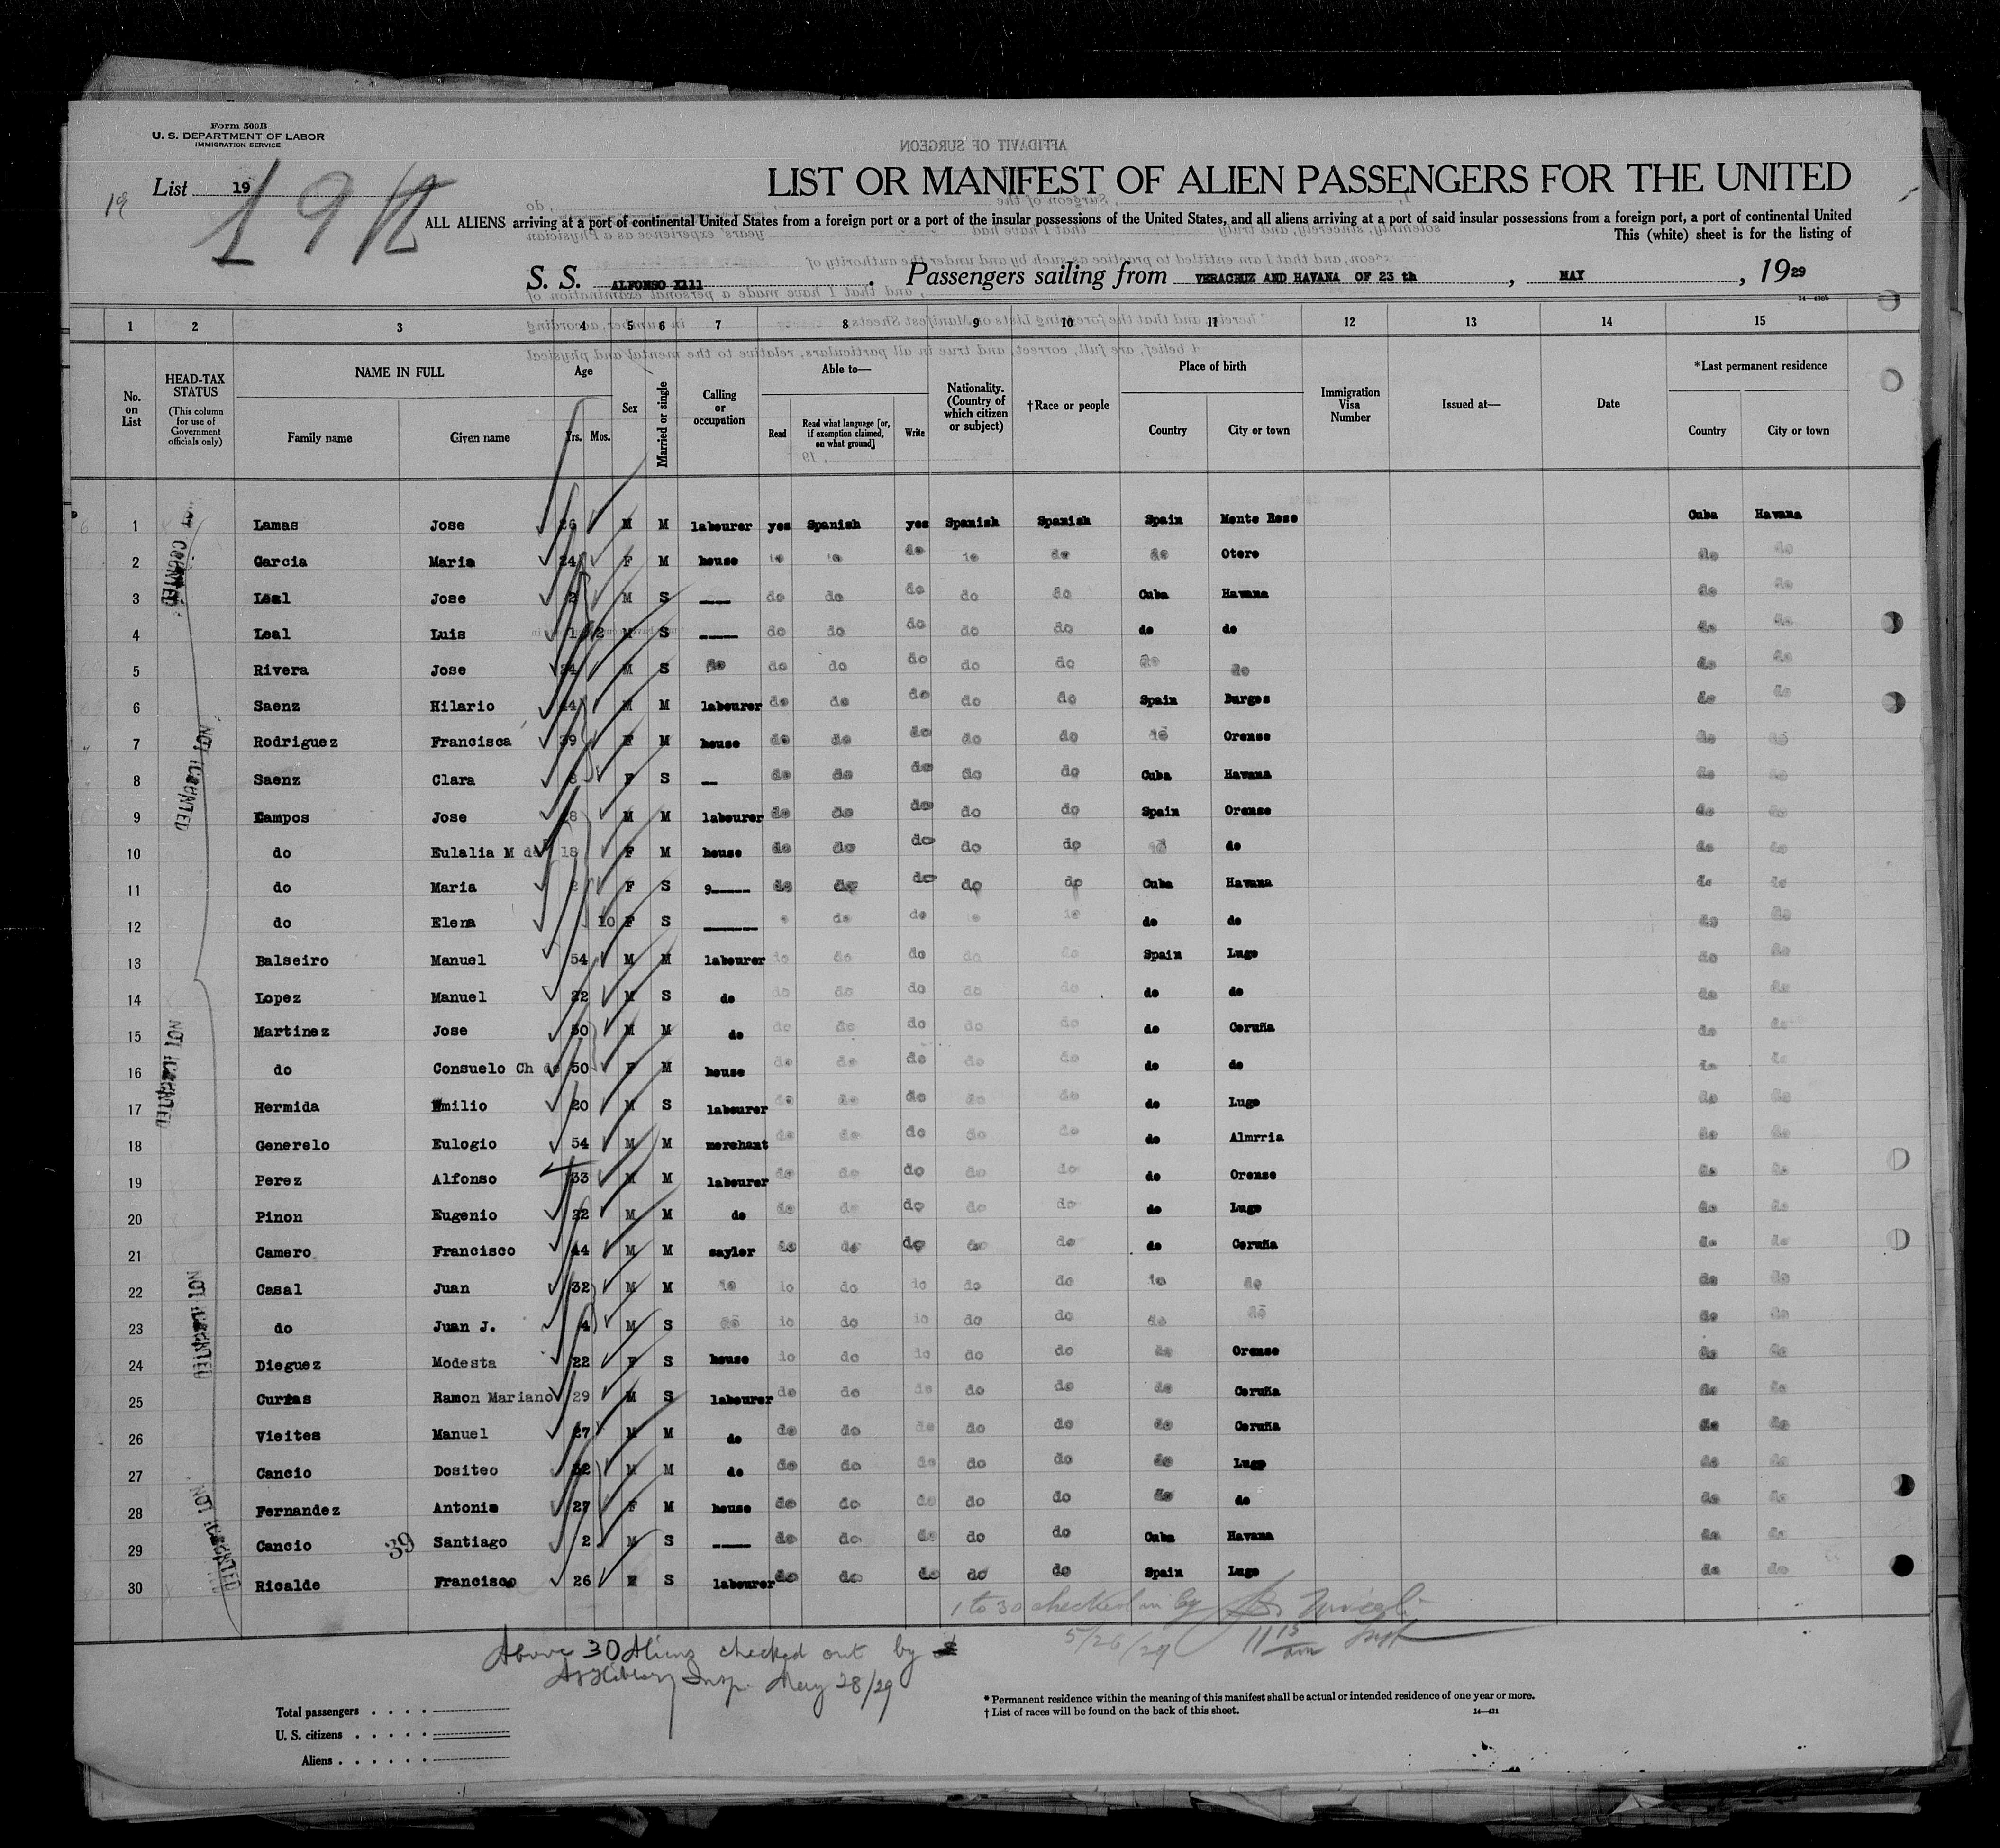 Form 500B
U. S. DEPARTMENT OF LABOR
IMMIGRATION SERVICE
AFFIDAVIT OF SURGEON
List 19
19
LIST OR MANIFEST OF ALIEN PASSENGERS FOR THE UNITED
ALL ALIENS arriving at a port of continental United States from a foreign port or a port of the insular possessions of the United States, and all aliens arriving at a port of said insular possessions from a foreign port, a port of continental United
This (white) sheet is for the listing of
S. S. ALFONSO X111. Passengers sailing from VERACRUZ AND HAVANA OF 23 th, MAY, 1929
1 2 3 4 5 6 7 8 9 10 11 12 13 14 15
No. on List
HEAD-TAX STATUS (This column for use of Government officials only)
NAME IN FULL Family name Given name
Age Yrs. Mos.
Sex
Married or single
Calling or occupation
Able to— Read Read what language [or, if exemption claimed, on what ground] Write
Nationality. (Country of which citizen or subject)
†Race or people
Place of birth Country City or town
Immigration Visa Number
Issued at—
Date
*Last permanent residence Country City or town
1 Lamas Jose 26 M M labourer yes Spanish yes Spanish Spanish Spain Monte Rose Cuba Havana
2 Garcia Maria 24 F M house do do do do do do Otero do do
3 Leal Jose 2 M S do do do do do Cuba Havana do do
4 Leal Luis 1 2 M S do do do do do do do do do
5 Rivera Jose M S do do do do do do do do do do
6 Saenz Hilario 44 M M labourer do do do do do Spain Burgos do do
7 Rodriguez Francisca 39 F M house do do do do do do Orense do do
8 Saenz Clara F S do do do do do Cuba Havana do do
9 Campos Jose M M labourer do do do do do Spain Orense do do
10 do Eulalia M de 18 F M house do do do do do do do do do
11 do Maria 2 F S 9 do do do do do Cuba Havana do do
12 do Elena 10 F S do do do do do do do do do
13 Balseiro Manuel 54 M M labourer do do do do do Spain Lugo do do
14 Lopez Manuel 22 M S do do do do do do do do do do
15 Martinez Jose 50 M M do do do do do do do Coruña do do
16 do Consuelo Ch de 50 F M house do do do do do do do do do
17 Hermida Emilio 20 M S labourer do do do do do do Lugo do do
18 Generelo Eulogio 54 M M merchant do do do do do do Almrria do do
19 Perez Alfonso 33 M M labourer do do do do do do Orense do do
20 Pinon Eugenio 22 M M do do do do do do do Lugo do do
21 Camero Francisco 44 M M sayler do do do do do do Coruña do do
22 Casal Juan 32 M M do do do do do do do do do do
23 do Juan J. 4 M S do do do do do do do do do do
24 Dieguez Modesta 22 F S house do do do do do do Orense do do
25 Curtas Ramon Mariano 29 M S labourer do do do do do do Coruña do do
26 Vieites Manuel 27 M M do do do do do do do Coruña do do
27 Cancio Dositeo 32 M M do do do do do do do Lugo do do
28 Fernandez Antonia 27 F M house do do do do do do do do do
29 Cancio 39 Santiago 2 M S do do do do do Cuba Havana do do
30 Ricalde Francisco 26 M S labourer do do do do do Spain Lugo do do
NOT COUNTED
NOT COUNTED
NOT COUNTED
NOT COUNTED
NOT COUNTED
1 to 30 checked in by
5/26/29 11 15 am Insp
Above 30 Aliens checked out by
Insp. May 28/29
Total passengers
U. S. citizens
Aliens
* Permanent residence within the meaning of this manifest shall be actual or intended residence of one year or more.
† List of races will be found on the back of this sheet.
14—421